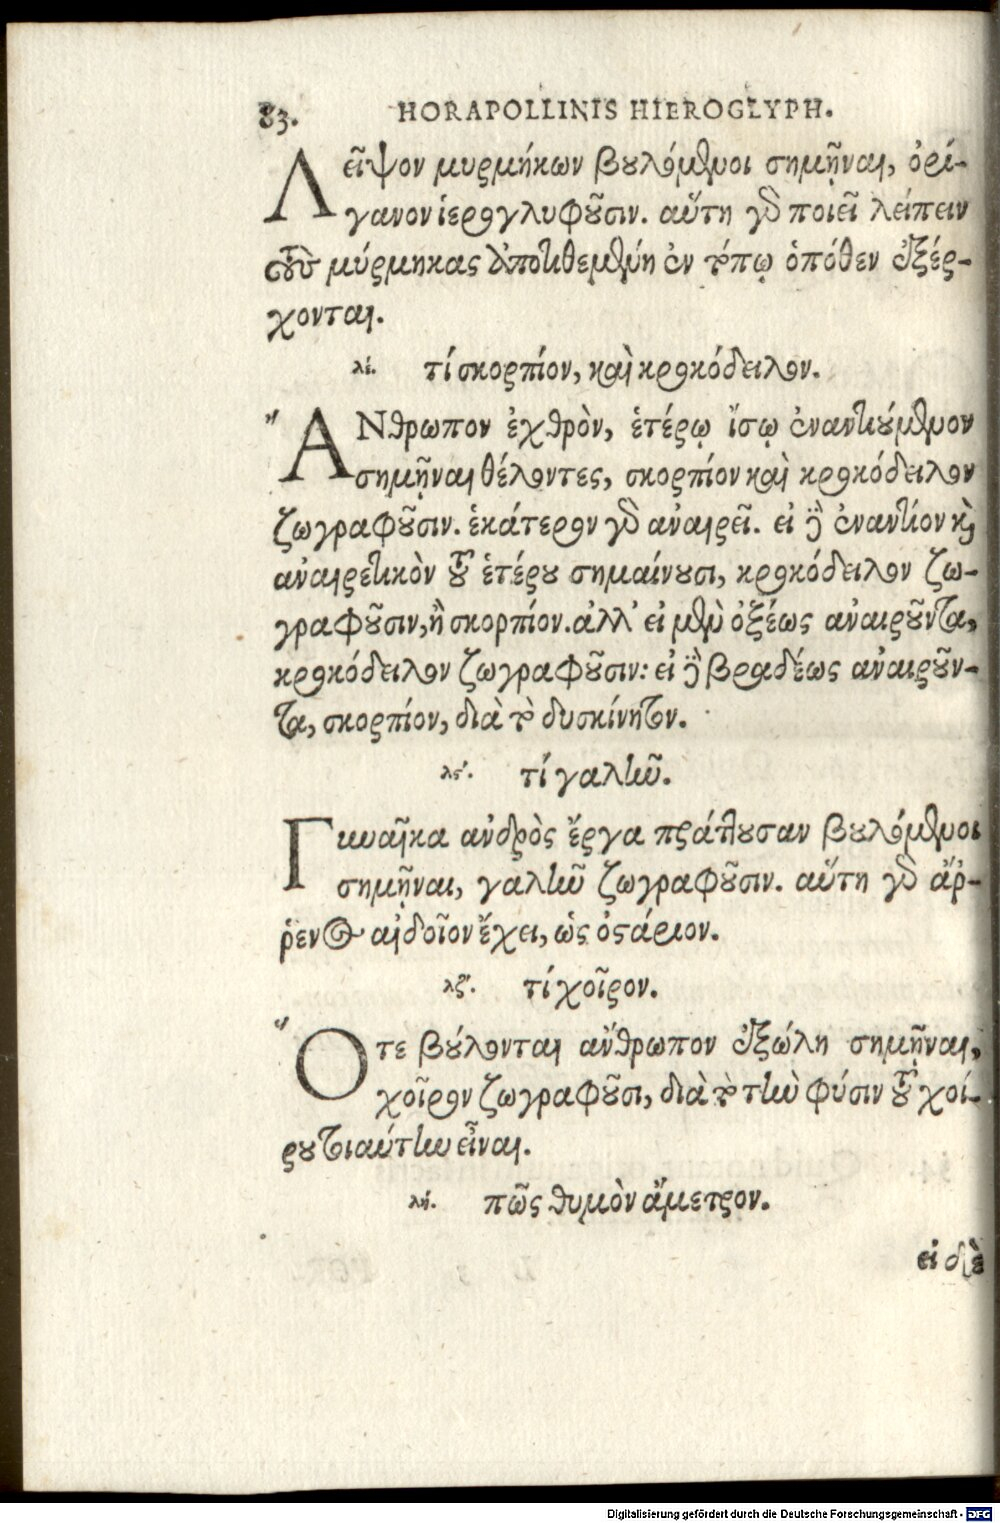 83. HORAPOLLINIS HIEROGLYPH.
Λεῖψον μυρμήκων βουλόμενοι σημῆναι, ὀρί-
γανον ἱερογλυφοῦσιν. αὕτη γὰρ ποιεῖ λείπειν
τοὺς μύρμηκας ἀποτιθεμένη ἐν τόπῳ ὁπόθεν ἐξέρ-
χονται.
λέ. τί σκορπίον, καὶ κροκόδειλον.
ἊΝθρωπον ἐχθρὸν, ἑτέρῳ ἴσῳ ἐναντιούμενον
σημῆναι θέλοντες, σκορπίον καὶ κροκόδειλον
ζωγραφοῦσιν. ἑκάτερον γὰρ ἀναιρεῖ. εἰ δὲ ἐναντίον καὶ
ἀναιρετικὸν τοῦ ἑτέρου σημαίνουσι, κροκόδειλον ζω-
γραφοῦσιν, ἢ σκορπίον. ἀλλ' εἰ μὲν ὀξέως ἀναιροῦντα,
κροκόδειλον ζωγραφοῦσιν: εἰ δὲ βραδέως ἀναιροῦν-
τα, σκορπίον, διὰ τὸ δυσκίνητον.
λϛ'. τί γαλῆν.
Γυναῖκα ἀνδρὸς ἔργα πράττουσαν βουλόμενοι
σημῆναι, γαλῆν ζωγραφοῦσιν. αὕτη γὰρ ἄῤ-
ῥενος αἰδοῖον ἔχει, ὡς ὀστάριον.
λζ'. τί χοῖρον.
Ὅτε βούλονται ἄνθρωπον ἐξώλη σημῆναι,
χοῖρον ζωγραφοῦσι, διὰ τὸ τὴν φύσιν τοῦ χοί-
ρου τοιαύτην εἶναι.
λή. πῶς θυμὸν ἄμετρον.
εἰ δὲ
Digitalisierung gefördert durch die Deutsche Forschungsgemeinschaft - DFG